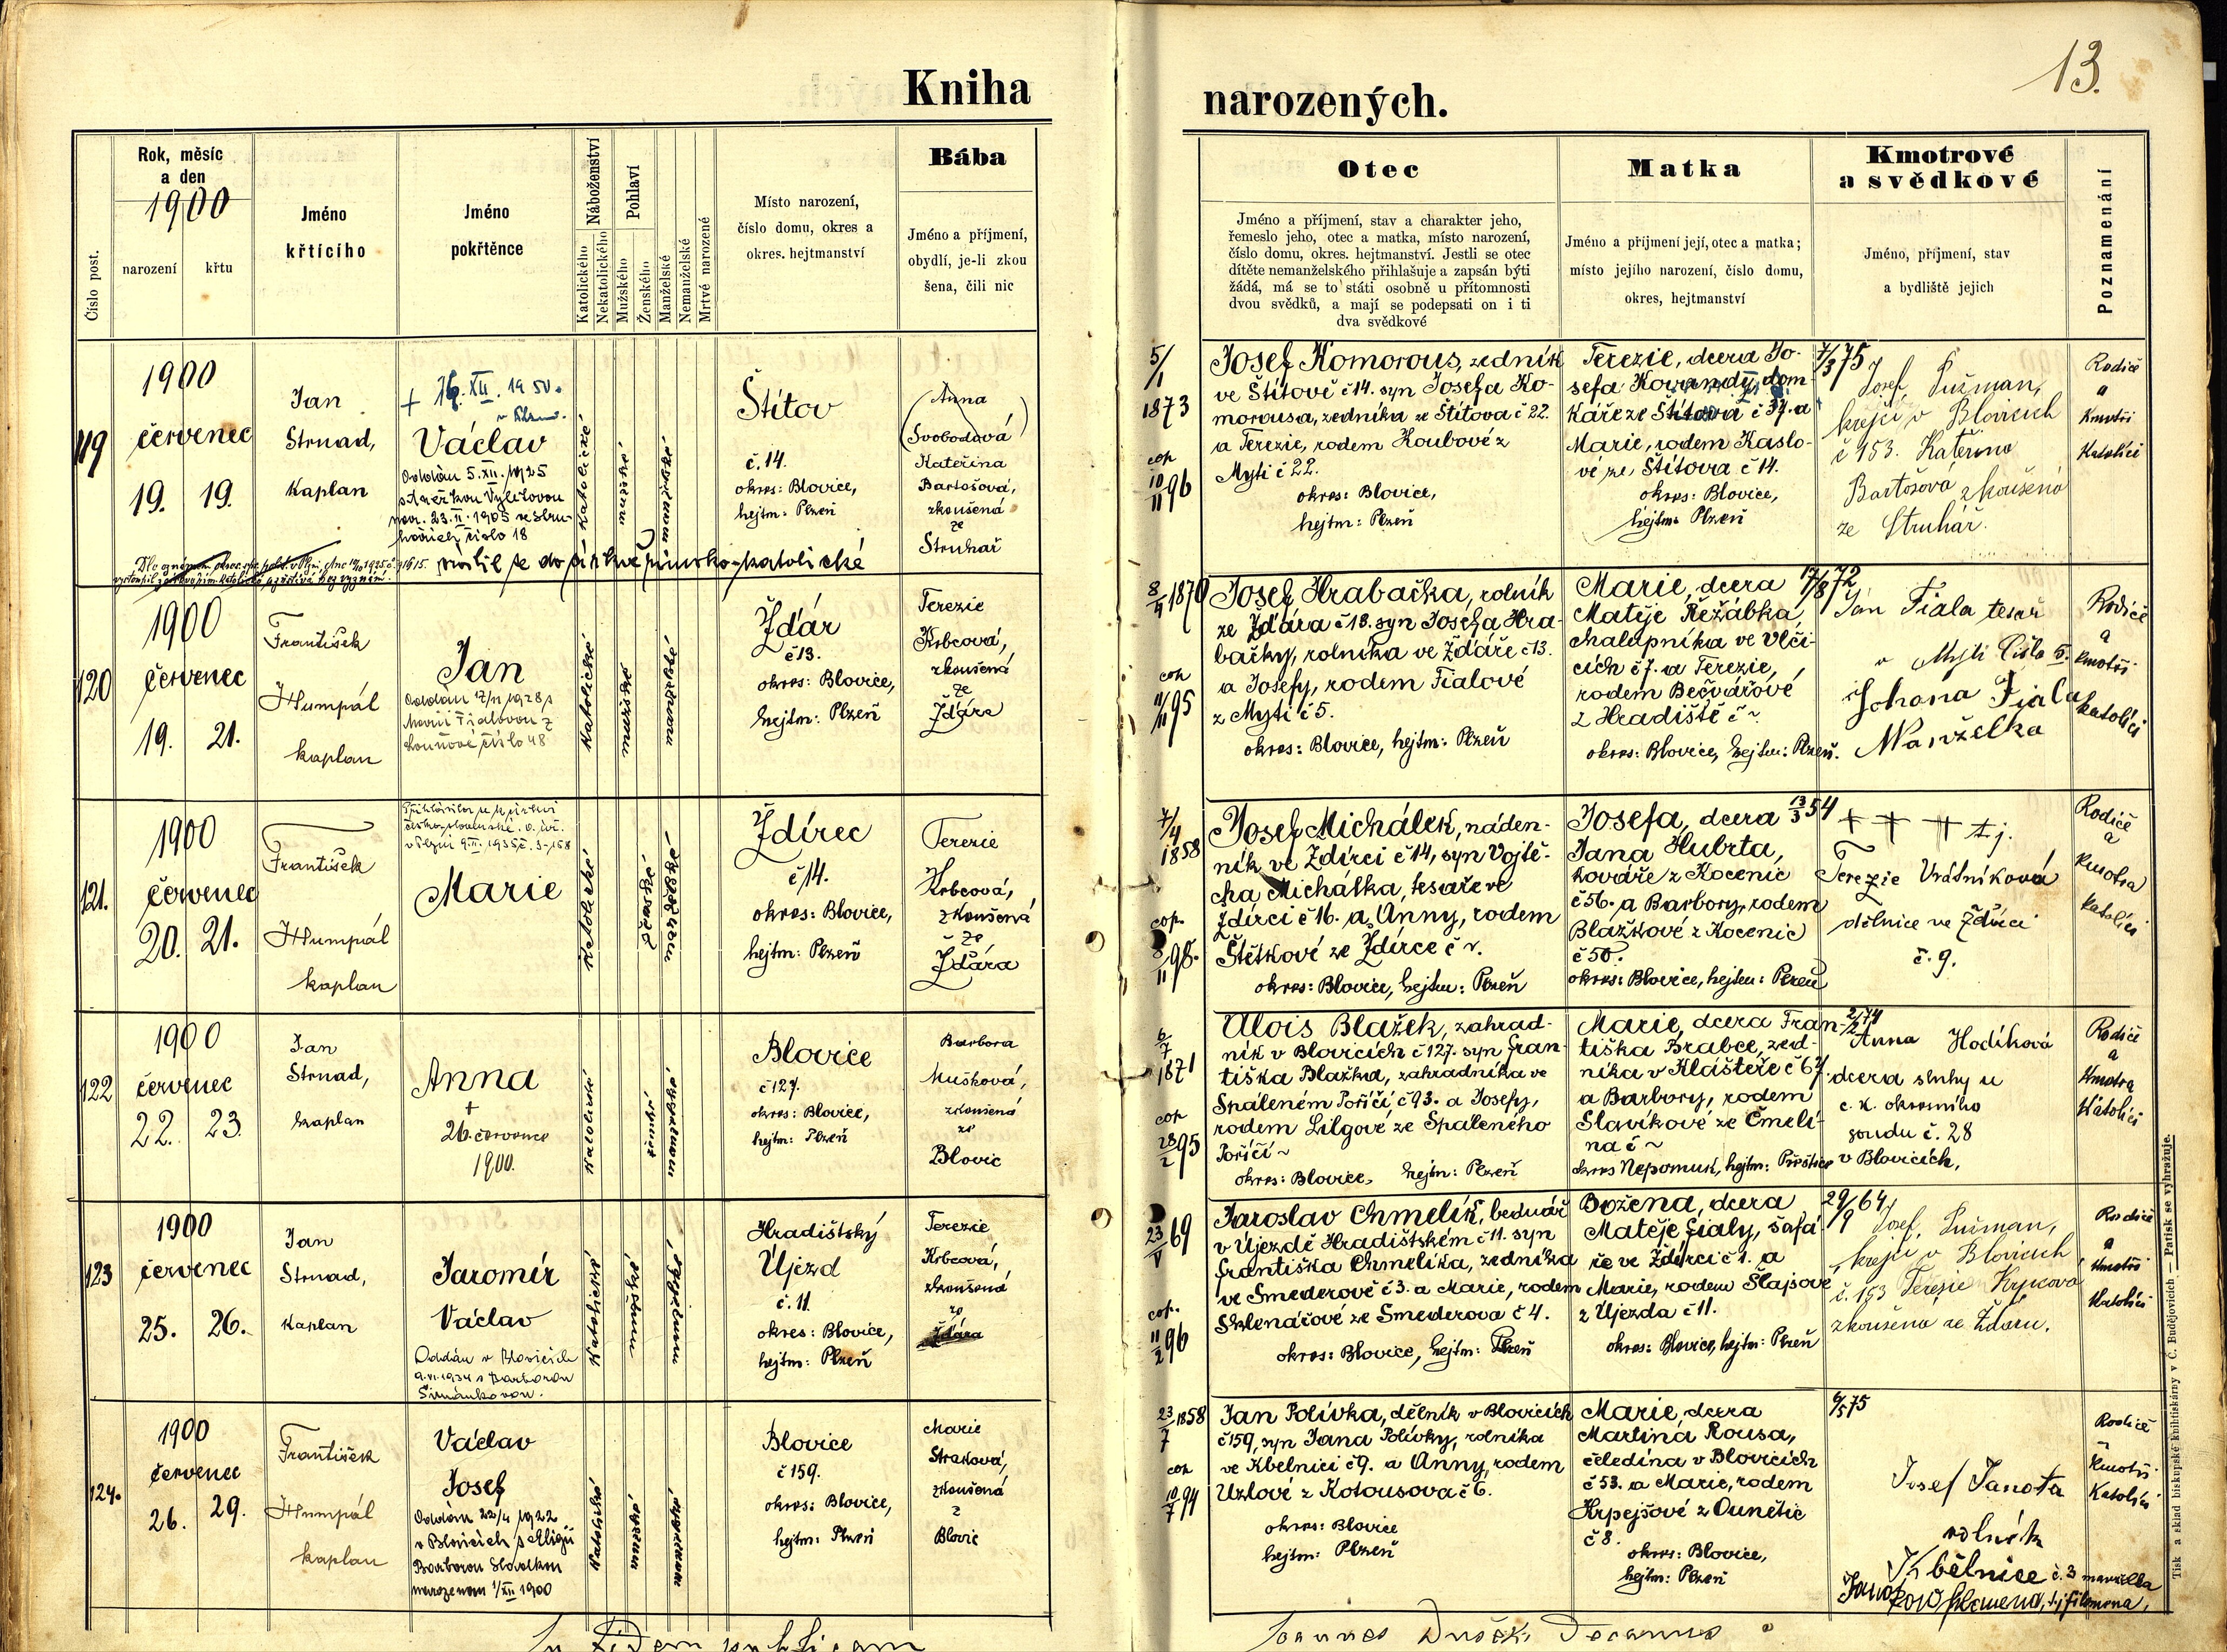 13.
Kniha
narozených.
Číslo post.
Rok, měsíc
a den
1900
narození
křtu
Jméno
křtícího
Jméno
pokřtěnce
Náboženství
Katolického
Nekatolického
Pohlaví
Mužského
Ženského
Manželské
Nemanželské
Mrtvé narozené
Místo narození,
číslo domu, okres a
okres. hejtmanství
Bába
Jméno a příjmení,
obydlí, je-li zkou
šena, čili nic
Otec
Jméno a příjmení, stav a charakter jeho,
řemeslo jeho, otec a matka, místo narození,
číslo domu, okres. hejtmanství. Jestli se otec
dítěte nemanželského přihlašuje a zapsán býti
žádá, má se to státi osobně u přítomnosti
dvou svědků, a mají se podepsati on i ti
dva svědkové
Matka
Jméno a příjmení její, otec a matka;
místo jejího narození, číslo domu,
okres, hejtmanství
Kmotrové
a svědkové
Jméno, příjmení, stav
a bydliště jejich
Poznamenání
119
1900
červenec
19. 19.
Jan
Strnad,
kaplan
Václav
Oddán 5.XII.1925
s Anežkou Výletovou
nar. 23.II.1905 ve Stru-
hařích číslo 18
katolické
mužské
manželské
Štítov
č. 14.
okres: Blovice,
hejtm: Plzeň
Anna
Svobodová
Kateřina
Bartošová,
zkoušená
ze
Struhař
vrátil se do církve římsko-katolické
5/1
1873
cop
10/11 96
Josef Komorous, zedník
ve Štítově č 14. syn Josefa Ko-
morousa, zedníka ze Štítova č 22.
a Terezie, rodem Koubové z
Mýti č 22.
okres: Blovice,
hejtm: Plzeň
Terezie, dcera Jo-
sefa Kovandy, dom-
káře ze Štítova č 37. a
Marie, rodem Kaslo-
vé ze Štítova č 14.
okres: Blovice,
hejtm: Plzeň
7/3 75
Josef Lužman,
krejčí v Blovicích
č 153. Kateřina
Bartošová zkoušená
ze Struhař.
Rodiče
a
Kmotři
Katolíci
120
1900
červenec
19. 21.
František
Humpál
kaplan
Jan
Oddán 17/11 1928 s
Marií Fialovou z
číslo 48
Katolické
mužské
manželské
Ždár
č 13.
okres: Blovice,
hejtm: Plzeň
Terezie
Krbcová,
zkoušená
ze
Ždára
8/4 1870
cop
11/11 95
Josef Hrabačka, rolník
ze Ždára č 18. syn Josefa Hra-
bačky, rolníka ve Ždáře č 13.
a Josefy, rodem Fialové
z Mýti č 5.
okres: Blovice, hejtm: Plzeň
Marie, dcera
Matěje Řežábka,
chalupníka ve Vlči-
cích č 7. a Terezie,
rodem Bečvářové
z Hradiště č ~
okres: Blovice, hejtm: Plzeň.
17/8 72
Jan Fiala tesař
v Mýti číslo 5.
Johana Fiala
Manželka
Rodiče
a
kmotři
katolíci
121.
1900
červenec
20. 21.
František
Humpál
kaplan
Přihlásila se k církvi
československé
Marie
Katolické
Ženské
manželské
Ždírec
č 14.
okres: Blovice,
hejtm: Plzeň
Terezie
Krbcová,
zkoušená
ze
Ždára
7/4
1858
cop.
8/11 98.
Josef Michálek, náden-
ník ve Ždírci č 14, syn Vojtě-
cha Michálka, tesaře ve
Ždírci č 16. a Anny, rodem
Štětkové ze Ždírce č v.
okres: Blovice, hejtm: Plzeň
Josefa, dcera
Jana Hubrta,
kováře z Kocenic
č 56. a Barbory, rodem
Blažkové z Kocenic
č 50.
okres: Blovice, hejtm: Plzeň
13/3 54
+ + + t. j.
Terezie Vrátníková
dělnice ve Ždírci
č. 9.
Rodiče
a
kmotra
katolíci
122
1900
červenec
22. 23.
Jan
Strnad,
kaplan
Anna
+
26. července
1900.
Katolické
ženské
manželské
Blovice
č 127.
okres: Blovice,
hejtm: Plzeň
Barbora
Mušková,
zkoušená
ze
Blovic
6/7
1871
cop
28/2 95
Alois Blažek, zahrad-
ník v Blovicích č 127. syn Fran-
tiška Blažka, zahradníka ve
Spáleném Poříčí č 93. a Josefy,
rodem Lilgové ze Spáleného
Poříčí ~
okres: Blovice, hejtm: Plzeň
Marie, dcera Fran-
tiška Brabce, zed-
níka v Klášteře č 67.
a Barbory, rodem
Slavíkové ze Čmelí-
na č ~
okres Nepomuk, hejtm: Přeštice
2/2 74
Anna Hodíková
dcera sluhy u
c. k. okresního
soudu č. 28
v Blovicích,
Rodiče
a
Kmotra
Katolíci
123
1900
červenec
25. 26.
Jan
Strnad,
kaplan
Jaromír
Václav
Oddán v Blovicích
9.VI.1934 s Barborou
Šimánkovou.
Katolické
mužské
manželské
Hradištský
Újezd
č. 11.
okres: Blovice,
hejtm: Plzeň
Terezie
Krbcová,
zkoušená
ze
Ždára
23/V 69
cop.
11/2 96
Jaroslav Chmelík, bednář
v Újezdě Hradištském č 11. syn
Františka Chmelíka, zedníka
ve Smederově č 3. a Marie, rodem
Sklenářové ze Smederova č 4.
okres: Blovice, hejtm: Plzeň
Božena, dcera
Matěje Fialy, šafá-
ře ve Ždírci č 1. a
Marie, rodem Šlajsové
z Újezda č 11.
okres: Blovice, hejtm: Plzeň
29/9 64
Josef Lužman,
krejčí v Blovicích
č. 153 Terezie Krbcová
zkoušena ze Ždáru.
Rodiče
a
Kmotři
Katolíci
124.
1900
červenec
26. 29.
František
Humpál
kaplan
Václav
Josef
Oddán 22/4 1922
v Blovicích s Aloisií
Barborou Slovákou
narozenou 1/XII 1900
Katolické
mužské
manželské
Blovice
č 159.
okres: Blovice,
hejtm: Plzeň
Marie
Straková,
zkoušená
z
Blovic
23/7 1858
cop
10/7 94
Jan Polívka, dělník v Blovicích
č 159, syn Jana Polívky, rolníka
ve Kbelnici č 9. a Anny, rodem
Uzlové z Kotousova č 6.
okres: Blovice
hejtm: Plzeň
Marie, dcera
Martina Rousa,
čeledína v Blovicích
č 53. a Marie, rodem
Krpejšové z Ounětic
č 8.
okres: Blovice,
hejtm: Plzeň
6/5 75
Josef Janota
rolník
Kbelnice č. 3 manželka
Janotová Filomena, t.j. Filomena,
Rodiče
Kmotři
Katolíci
In fidem publicam
Joannes Dušek Decanus
Tisk a sklad biskupské knihtiskárny v Č. Budějovicích — Patisk se vyhražuje.